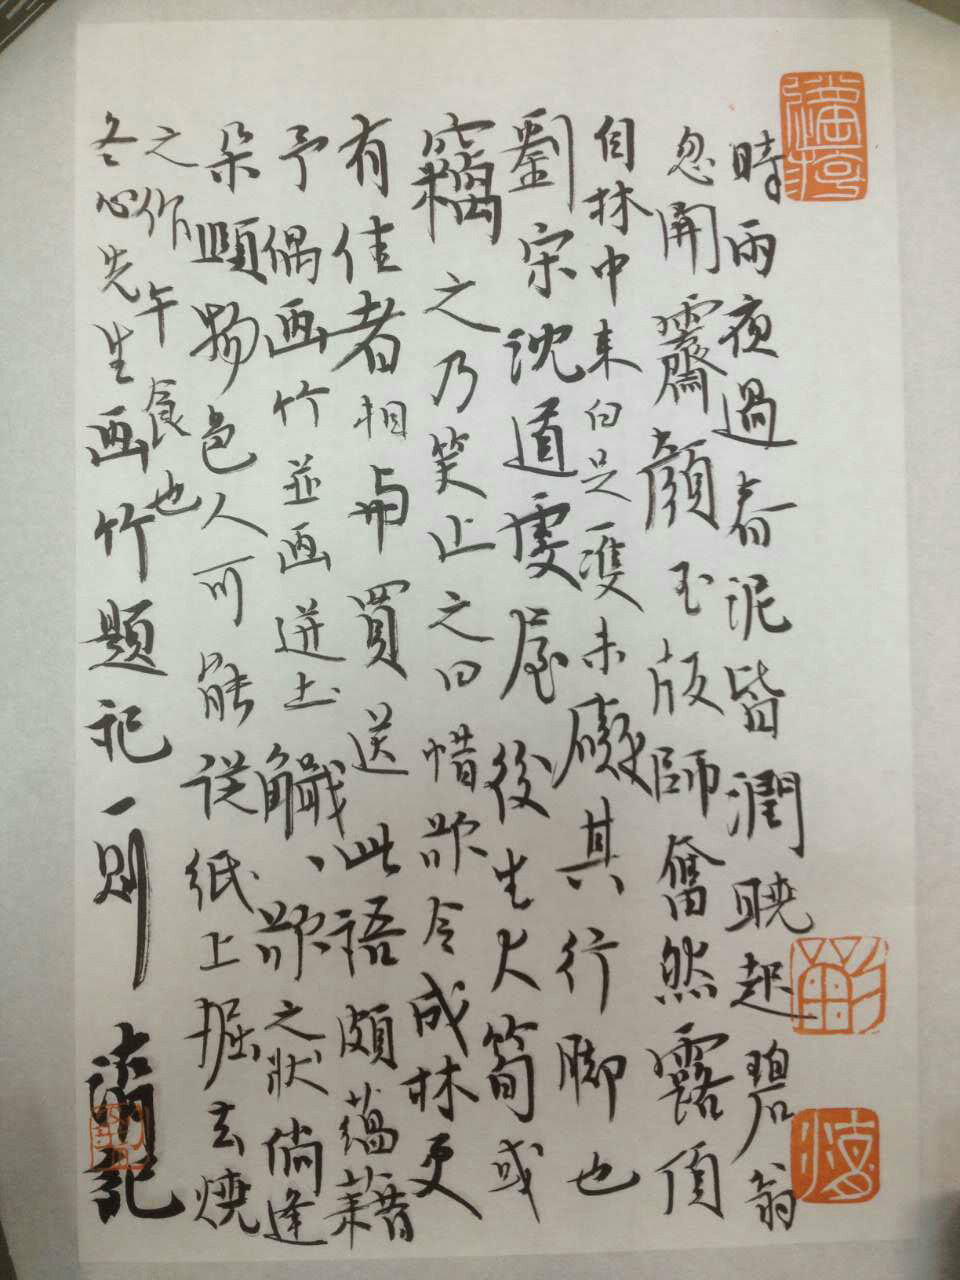 時雨夜過春泥皆潤曉起碧翁
忽開霽顏玉版師奮然露頂
自林中来白足一雙未礙其行脚也
劉宋沈道虔屋後生大筍或
竊之乃笑止之曰惜欲令成林更
有佳者相與買送此語頗蘊藉
予偶画竹並画迸土欲之狀倘逢
朵頤物色人可能從紙上掘去燒
之作午食也
冬心先生画竹題記一則 記